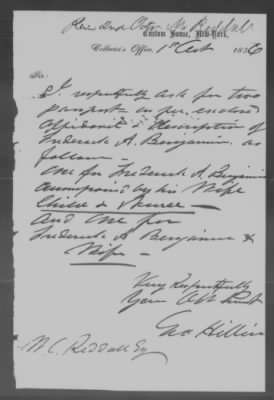 Custom House, New-York,
Collector's Office, 1st Oct 1886
Sir:
I respectfully ask for two
passport as per enclosed
affidavit & description of
Frederick A. Benjamin as
follow -
One for Frederick A. Benjamin
accompanied by his Wife
Child & Nurse -
And one for
Frederick A Benjamin &
Wife -
Very Respectfully
Your Obt Servt
Geo Hillier
N. C. Reddall Esq